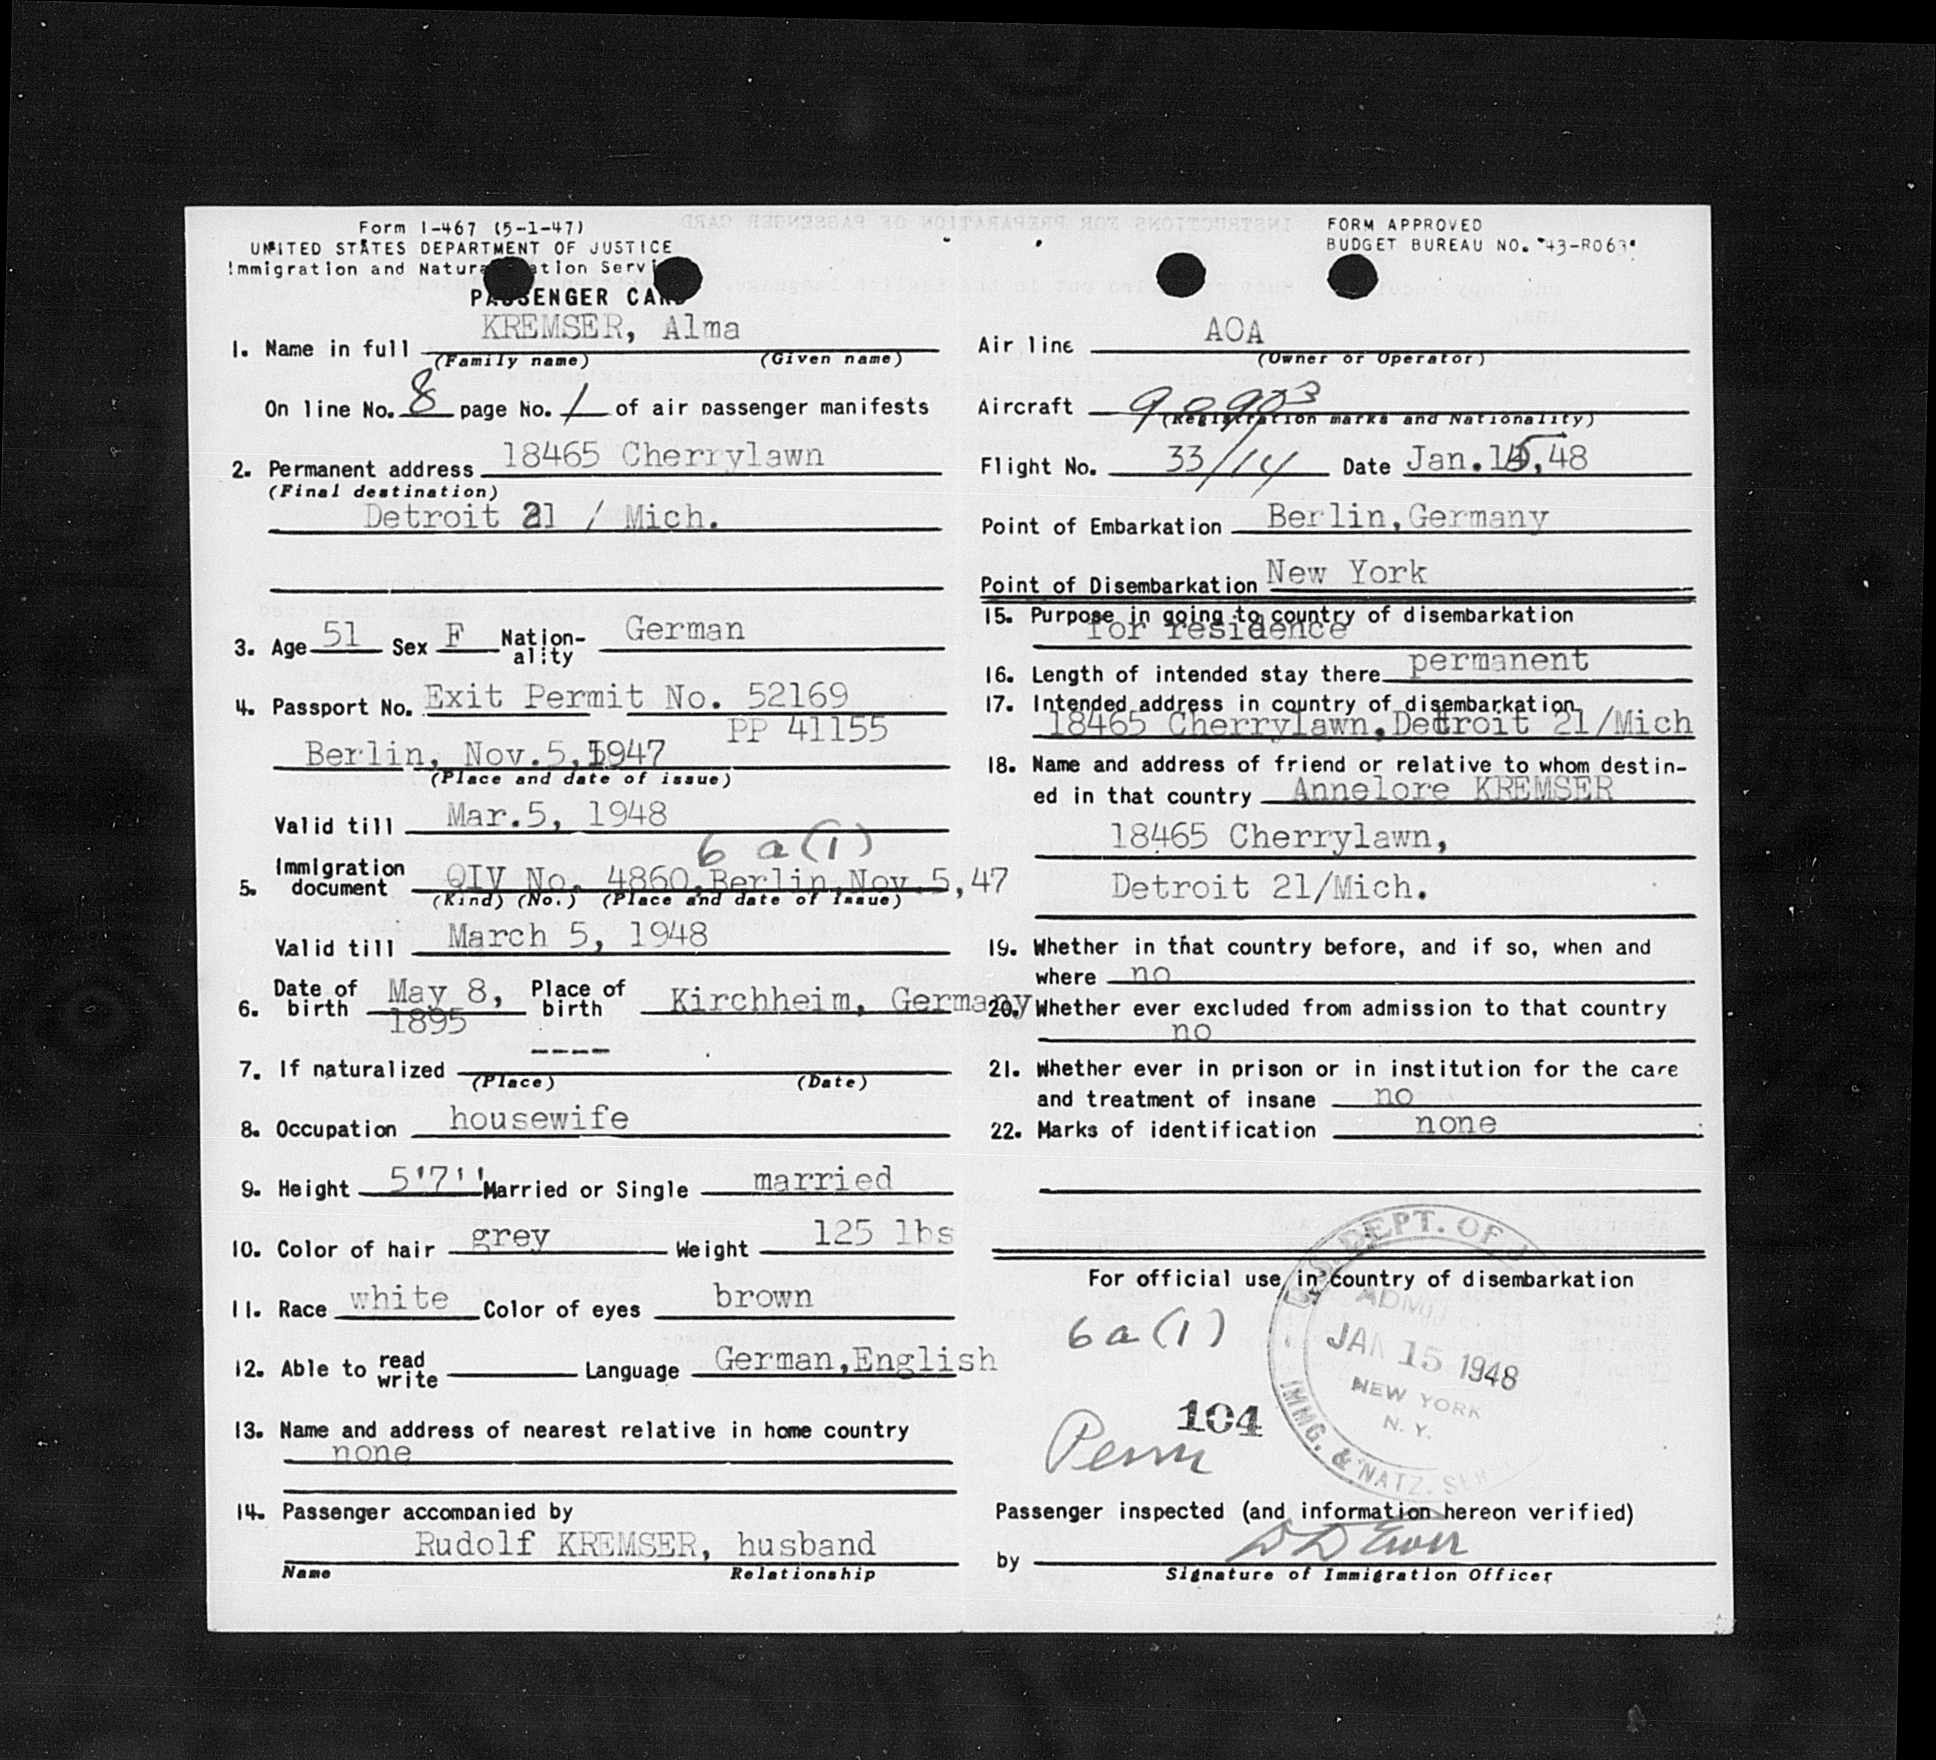 Form I-467 (5-1-47)
UNITED STATES DEPARTMENT OF JUSTICE
Immigration and Naturalization Service
PASSENGER CARD
1. Name in full KREMSER, Alma
(Family name) (Given name)
On line No. 8 page No. 1 of air passenger manifests
2. Permanent address 18465 Cherrylawn
(Final destination)
Detroit 21 / Mich.
3. Age 51 Sex F Nation-ality German
4. Passport No. Exit Permit No. 52169
PP 41155
Berlin, Nov.5,1947
(Place and date of issue)
Valid till Mar.5, 1948
6 a (1)
5. Immigration document QIV No. 4860,Berlin,Nov.5,47
(Kind) (No.) (Place and date of issue)
Valid till March 5, 1948
6. Date of birth May 8, 1895 Place of birth Kirchheim, Germany
7. If naturalized ----
(Place) (Date)
8. Occupation housewife
9. Height 5'7'' Married or Single married
10. Color of hair grey Weight 125 lbs
11. Race white Color of eyes brown
12. Able to read write Language German,English
13. Name and address of nearest relative in home country
none
14. Passenger accompanied by
Rudolf KREMSER, husband
Name Relationship
FORM APPROVED
BUDGET BUREAU NO. 43-R063
Air line AOA
(Owner or Operator)
Aircraft 90903
(Registration marks and Nationality)
Flight No. 33/14 Date Jan.15,48
Point of Embarkation Berlin,Germany
Point of Disembarkation New York
15. Purpose in going to country of disembarkation
for residence
16. Length of intended stay there permanent
17. Intended address in country of disembarkation
18465 Cherrylawn,Detroit 21/Mich
18. Name and address of friend or relative to whom destin-
ed in that country Annelore KREMSER
18465 Cherrylawn,
Detroit 21/Mich.
19. Whether in that country before, and if so, when and
where no
20. Whether ever excluded from admission to that country
no
21. Whether ever in prison or in institution for the care
and treatment of insane no
22. Marks of identification none
For official use in country of disembarkation
6 a (1)
104
Perm
U.S. DEPT. OF J
ADMIT
JAN 15 1948
NEW YORK
N. Y.
IMMG. & NATZ. SER
Passenger inspected (and information hereon verified)
by
Signature of Immigration Officer